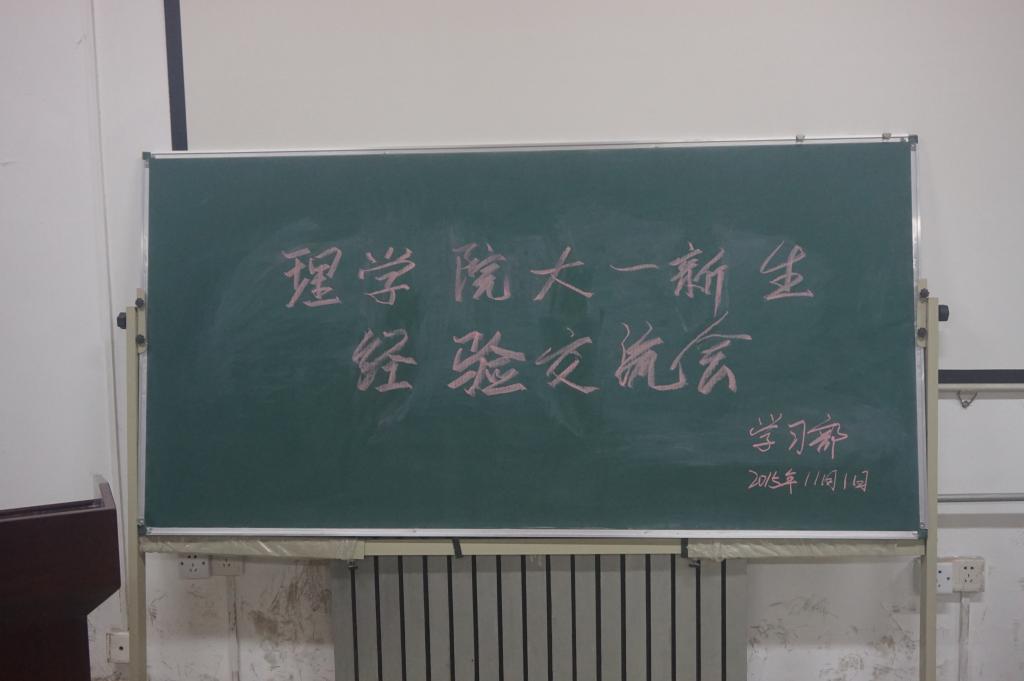 理学院大一新生
经验交流会
学习部
2015年11月1日